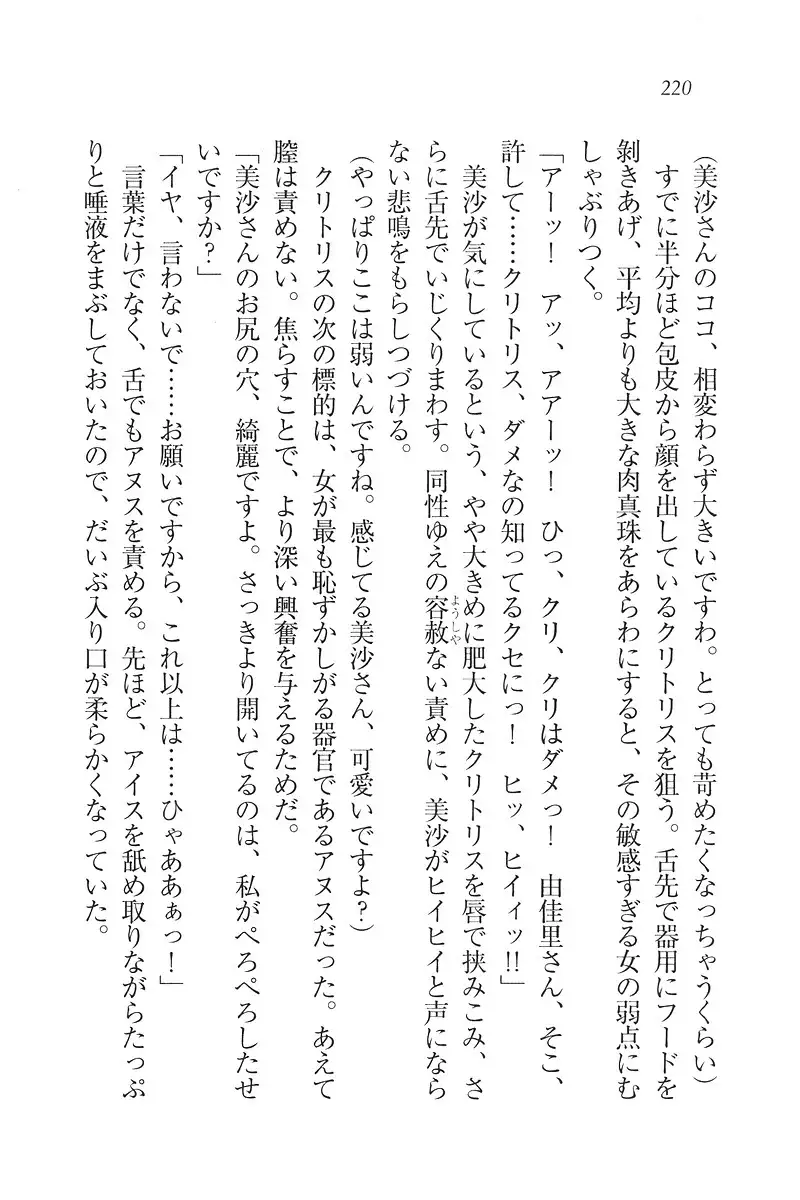 220
（美沙さんのココ、相変わらず大きいですわ。とっても苛めたくなっちゃうくらい）
すでに半分ほど包皮から顔を出しているクリトリスを狙う。舌先で器用にフードを
剝きあげ、平均よりも大きな肉真珠をあらわにすると、その敏感すぎる女の弱点にむ
しゃぶりつく。
「アーッ！　アッ、アアーッ！　ひっ、クリ、クリはダメっ！　由佳里さん、そこ、
許して……クリトリス、ダメなの知ってるクセにっ！　ヒッ、ヒイィッ!!」
美沙が気にしているという、やや大きめに肥大したクリトリスを唇で挟みこみ、さ
らに舌先でいじくりまわす。同性ゆえの容赦ようしゃない責めに、美沙がヒイヒイと声になら
ない悲鳴をもらしつづける。
（やっぱりここは弱いんですね。感じてる美沙さん、可愛いですよ？）
クリトリスの次の標的は、女が最も恥ずかしがる器官であるアヌスだった。あえて
膣は責めない。焦らすことで、より深い興奮を与えるためだ。
「美沙さんのお尻の穴、綺麗ですよ。さっきより開いてるのは、私がぺろぺろしたせ
いですか？」
「イヤ、言わないで……お願いですから、これ以上は……ひゃああぁっ！」
言葉だけでなく、舌でもアヌスを責める。先ほど、アイスを舐め取りながらたっぷ
りと唾液をまぶしておいたので、だいぶ入り口が柔らかくなっていた。